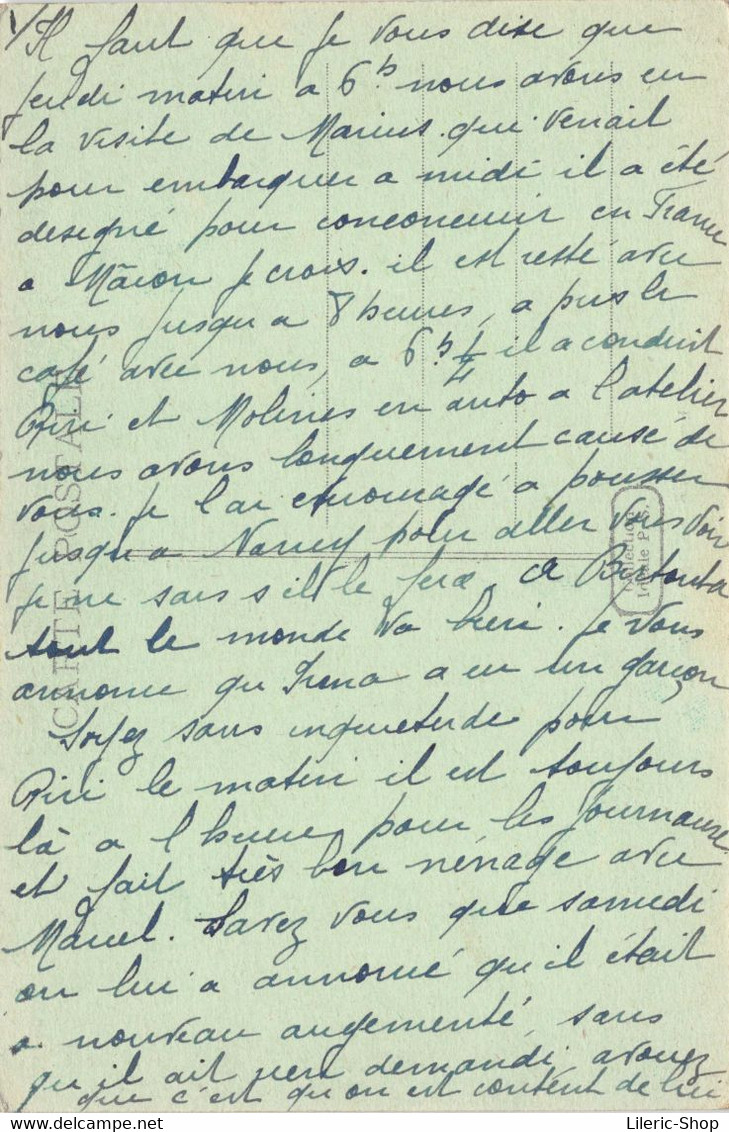 Il faut que je vous dise que
jeudi matin a 6h nous avons eu
la visite de Marius qui venait
pour embarquer a midi il a été
designé pour en France
a Mâcon je crois. il est resté avec
nous jusqu'a 8 heures, a pris le
café avec nous, a 6h 1/4 il a conduit
Riri et Molines en auto a l'atelier
nous avons longuement causé de
vous. Je l'ai encouragé a pousser
jusqu'a Nancy pour aller vous voir
je ne sais s'il le fera. A Birtouta
tout le monde va bien. Je vous
annonce qu'Irena a eu un garçon
Soyez sans inquietude pour
Riri le matin il est toujours
là a l'heure pour les journaux
et fait très bon ménage avec
Marcel. Savez vous que samedi
on lui a annoncé qu'il était
a nouveau augementé, sans
qu'il ait rien demandé, avouez
que c'est qu'on est content de lui
CARTE POSTALE
Collection
Idéale P.S.
Lileric-Shop